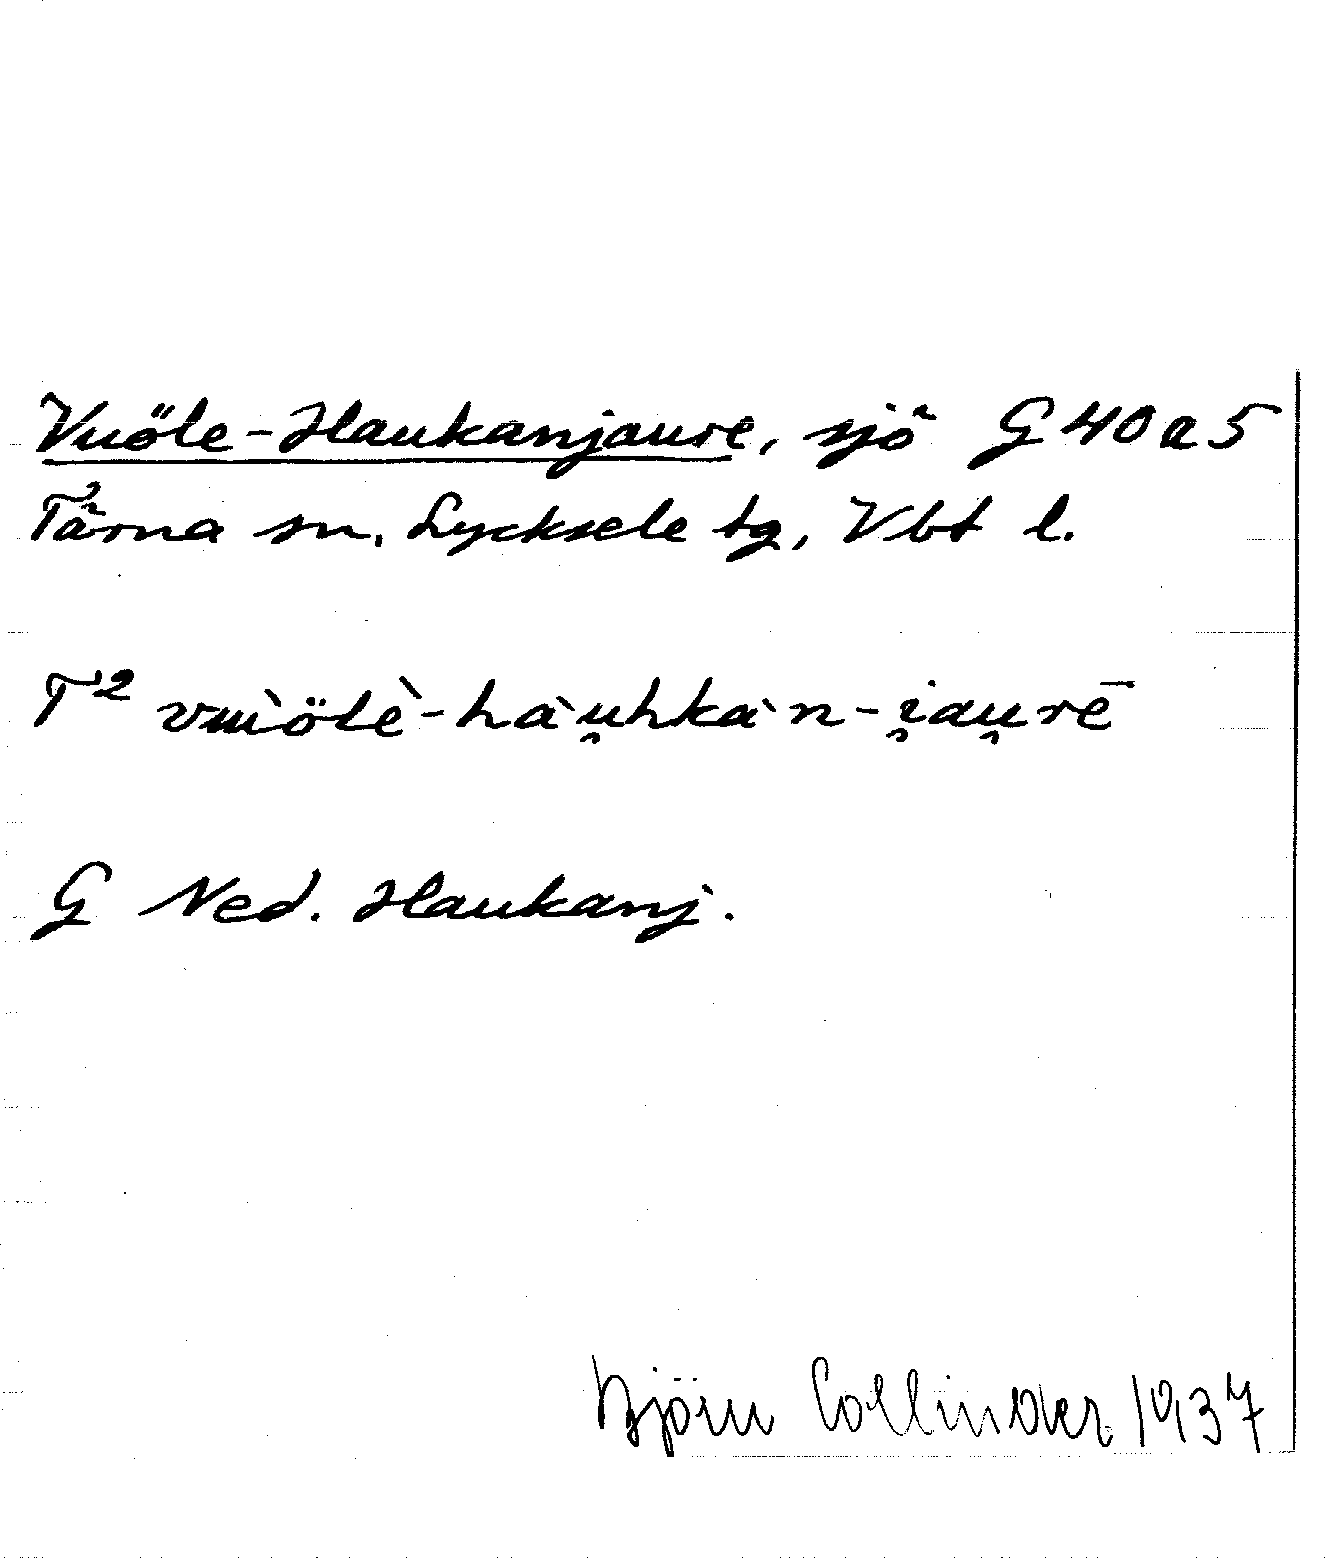 Vuöle-Haukanjaure, sjö G 40 a 5
Tärna sn, Lycksele tg, Vbt l.
T² vɯ̀ölè-hàu̯hkàn-i̯au̯rē
G Ned. Haukanj.
Björn Collinder 1937